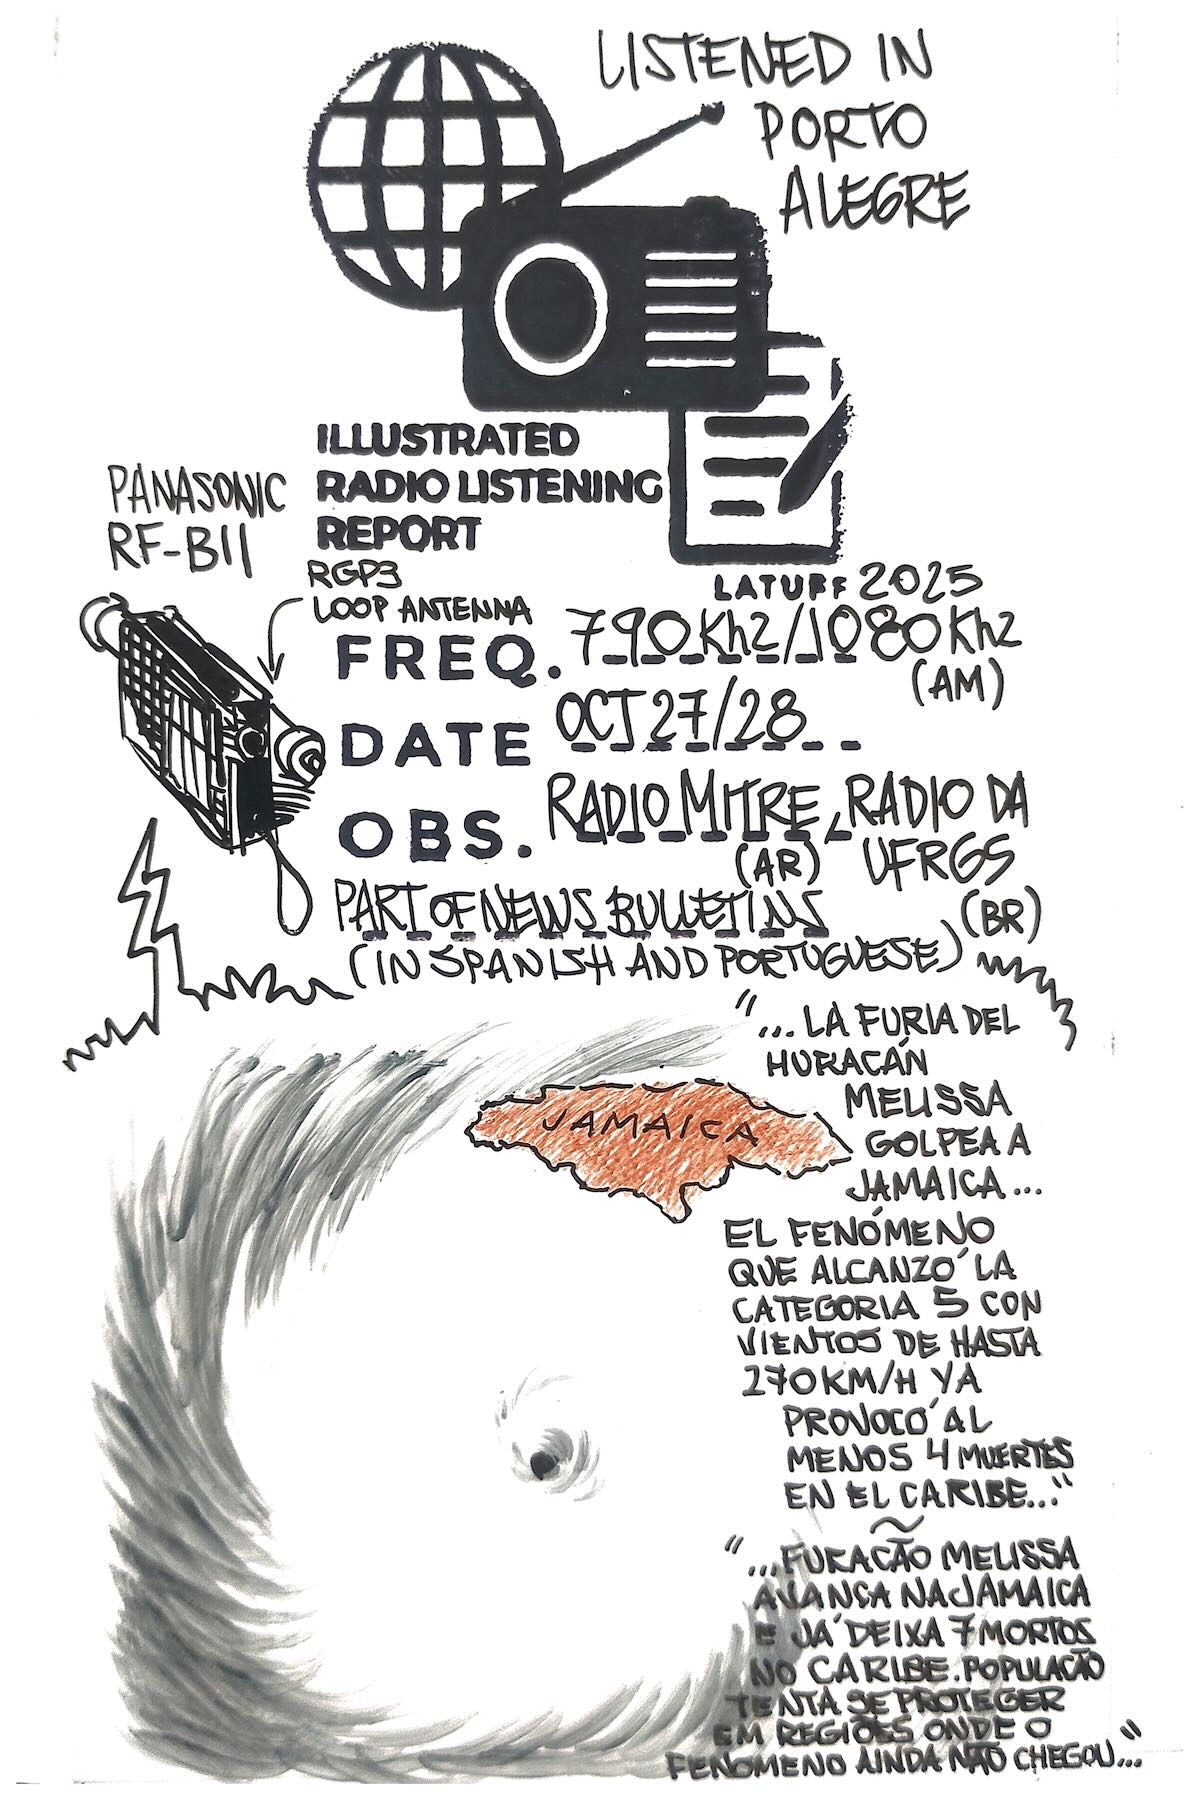 LISTENED IN
PORTO
ALEGRE
ILLUSTRATED
RADIO LISTENING
REPORT
PANASONIC
RF-B11
RGP3
LOOP ANTENNA
LATUFF 2025
FREQ. 790Khz/1080Khz
(AM)
DATE OCT 27/28
OBS. RADIO MITRE, RADIO DA
(AR) UFRGS
(BR)
PART OF NEWS BULLETINS
(IN SPANISH AND PORTUGUESE)
"... LA FURIA DEL
HURACÁN
MELISSA
GOLPEA A
JAMAICA...
JAMAICA
EL FENÓMENO
QUE ALCANZÓ LA
CATEGORIA 5 CON
VIENTOS DE HASTA
270KM/H YA
PROVOCÓ AL
MENOS 4 MUERTES
EN EL CARIBE..."
~
"...FURACÃO MELISSA
AVANÇA NA JAMAICA
E JÁ DEIXA 7 MORTOS
NO CARIBE. POPULAÇÃO
TENTA SE PROTEGER
EM REGIÕES ONDE O
FENOMENO AINDA NÃO CHEGOU..."